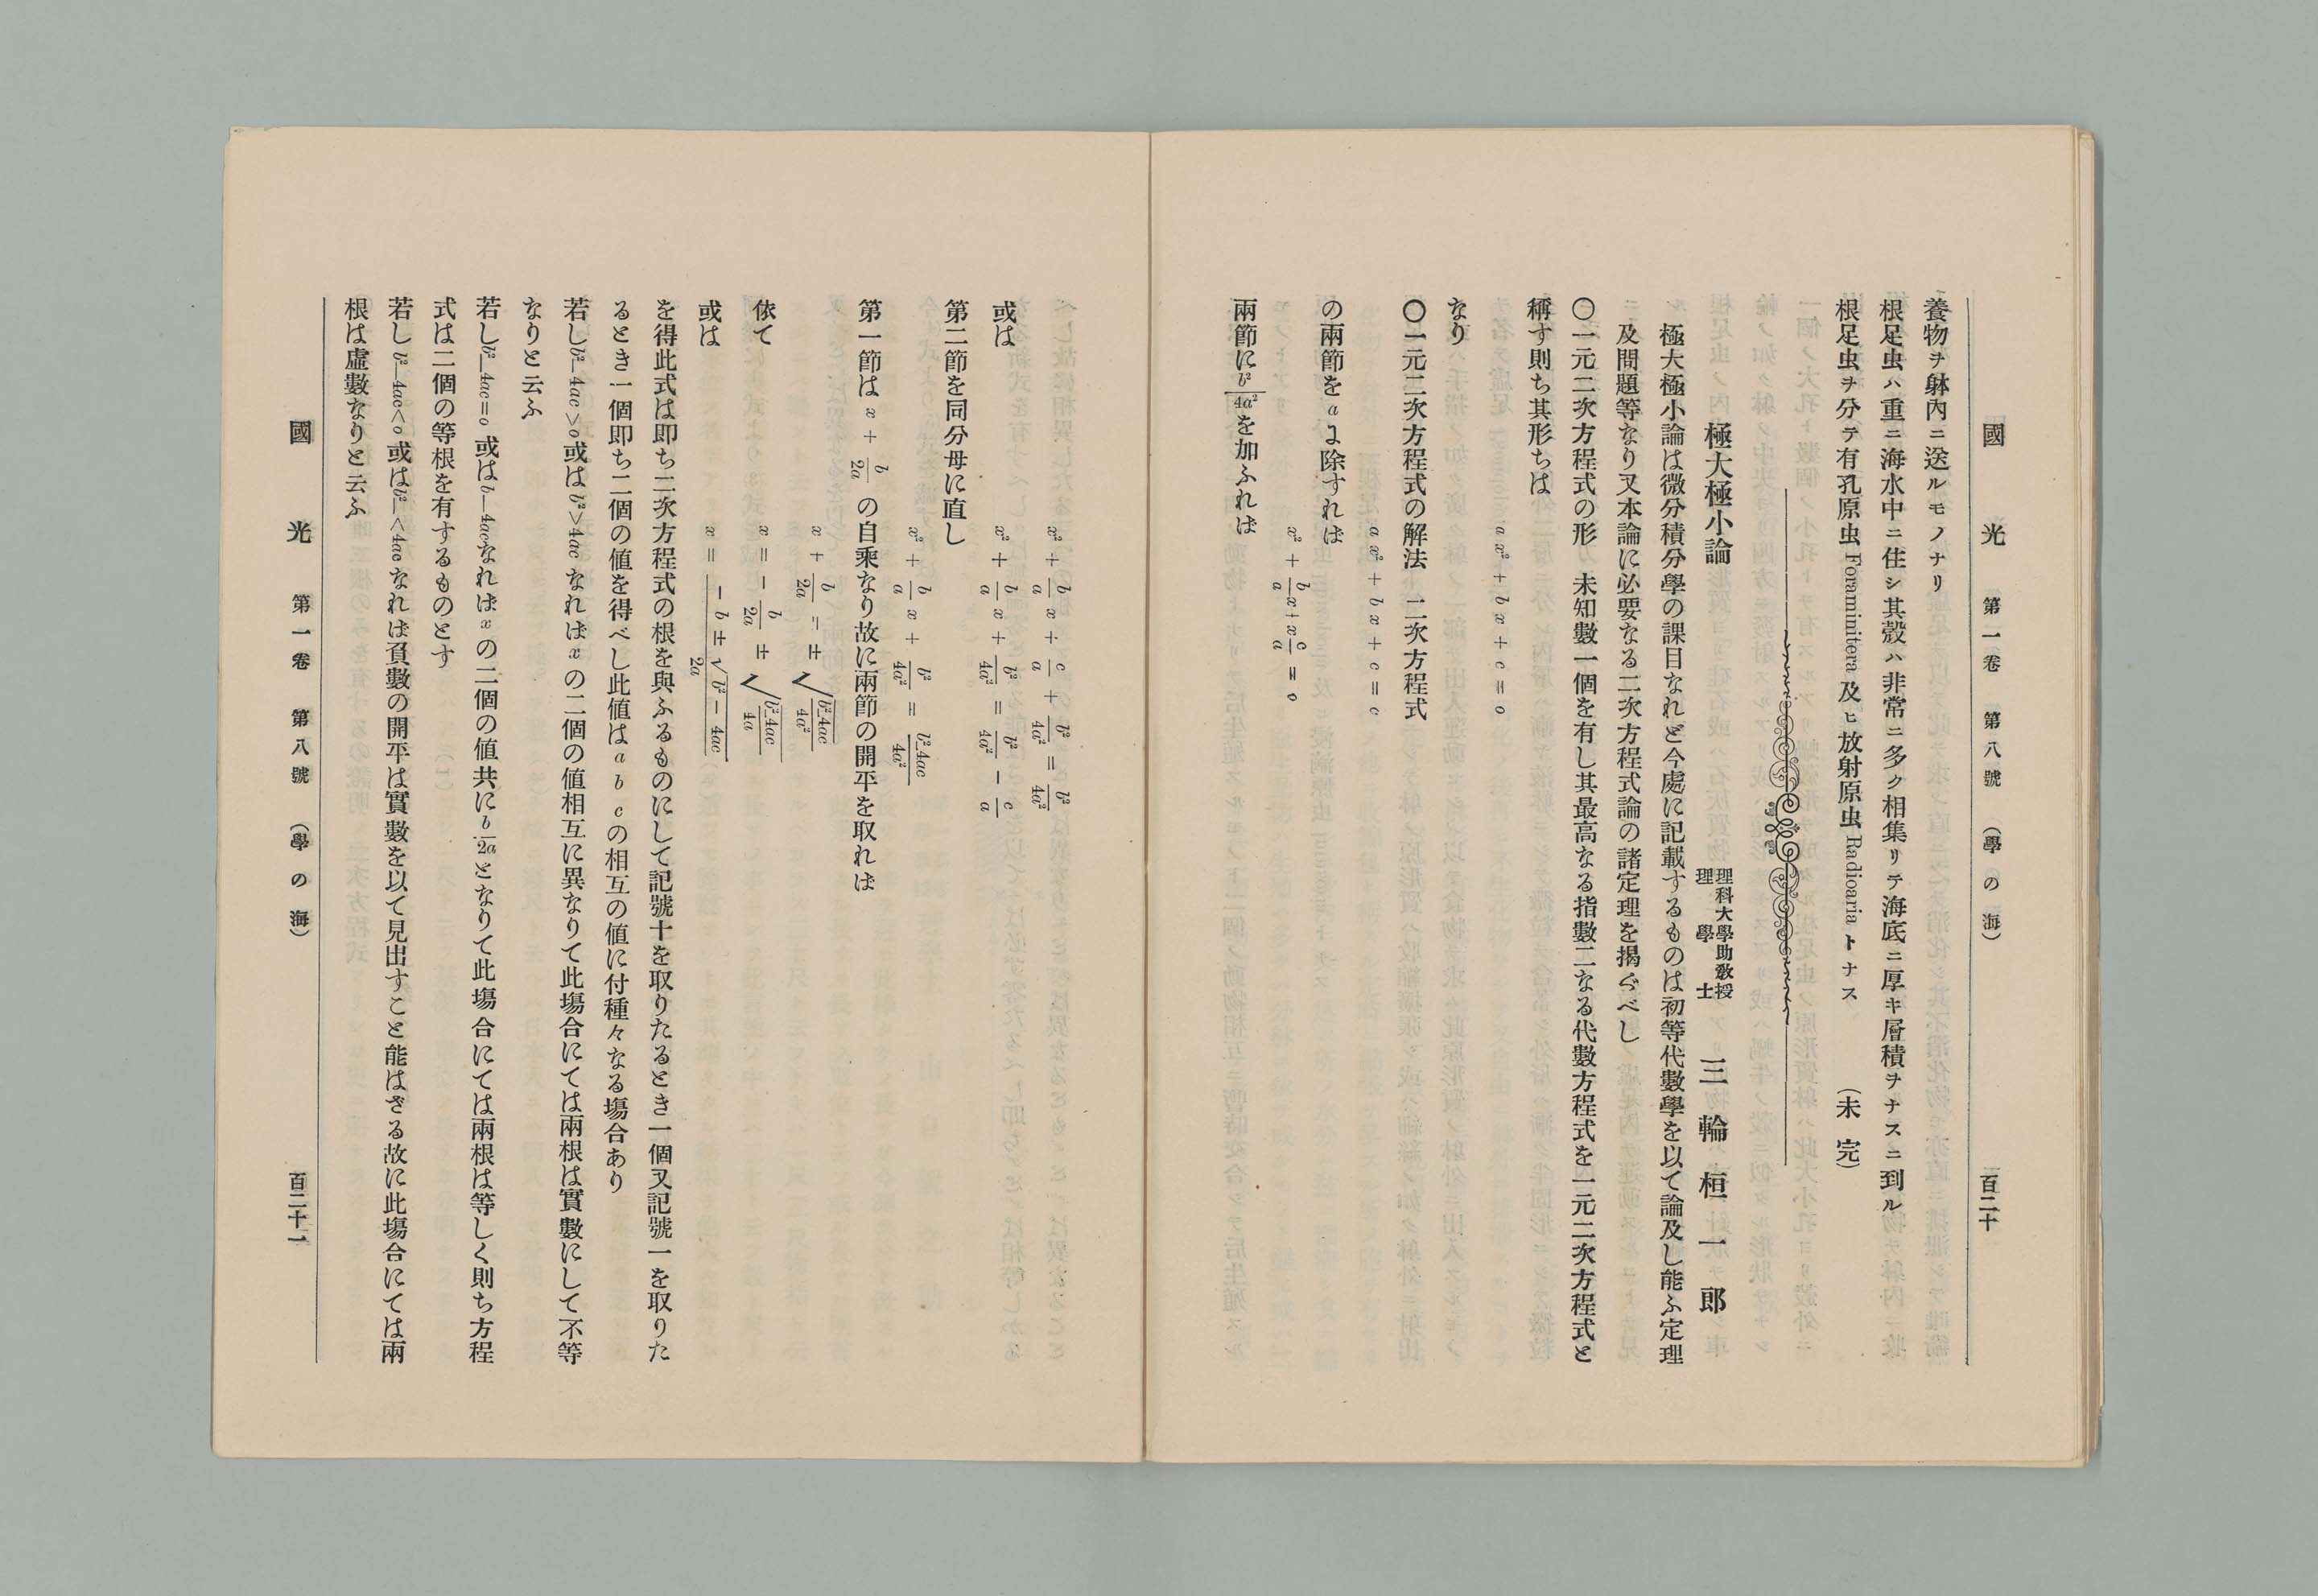 國光 第一卷 第八號 (學の海) 百二十
養物ヲ躰內ニ送ルモノナリ
根足虫ハ重ニ海水中ニ住シ其殼ハ非常ニ多ク相集リテ海底ニ厚キ層積ヲナスニ到ル
根足虫ヲ分テ有孔原虫 Foraminitera 及ヒ放射原虫 Radioaria トナス (未完)
極大極小論
理科大學助敎授
理學士
三輪桓一郎
極大極小論は微分積分學の課目なれど今處に記載するものは初等代數學を以て論及し能ふ定理
及問題等なり又本論に必要なる二次方程式論の諸定理を揭ぐべし
〇一元二次方程式の形 未知數一個を有し其最高なる指數二なる代數方程式を一元二次方程式と
稱す則ち其形ちは
a x² + b x + c = o
なり
〇一元二次方程式の解法 二次方程式
a x² + b x + c = c
の兩節を a ɪ 除すれば
x² + b/a x + x c/a = o
兩節に b²/4a² を加ふれば
x² + b/a x + c/a + b²/4a² = b²/4a²
或は
x² + b/a x + b²/4a² = b²/4a² − c/a
第二節を同分母に直し
x² + b/a x + b²/4a² = b²-4ac/4a²
第一節は x + b/2a の自乘なり故に兩節の開平を取れば
x + b/2a = ± √b²-4ac/4a²
依て
x = − b/2a ± √b²-4ac/4a
或は
x = − b ± √b² − 4ac/2a
を得此式は即ち二次方程式の根を與ふるものにして記號十を取りたるとき一個又記號一を取りた
るとき一個即ち二個の値を得べし此値は a b c の相互の値に付種々なる塲合あり
若し b²− 4ac > o 或は b² > 4ac なれば x の二個の値相互に異なりて此塲合にては兩根は實數にして不等
なりと云ふ
若し b²− 4ac = o 或は b − 4ac なれば x の二個の値共に b/2a となりて此塲合にては兩根は等しく則ち方程
式は二個の等根を有するものとす
若し b² − 4ac < o 或は b² − < 4ac なれば負數の開平は實數を以て見出すこと能はざる故に此塲合にては兩
根は虛數なりと云ふ
國光 第一卷 第八號 (學の海) 百二十一